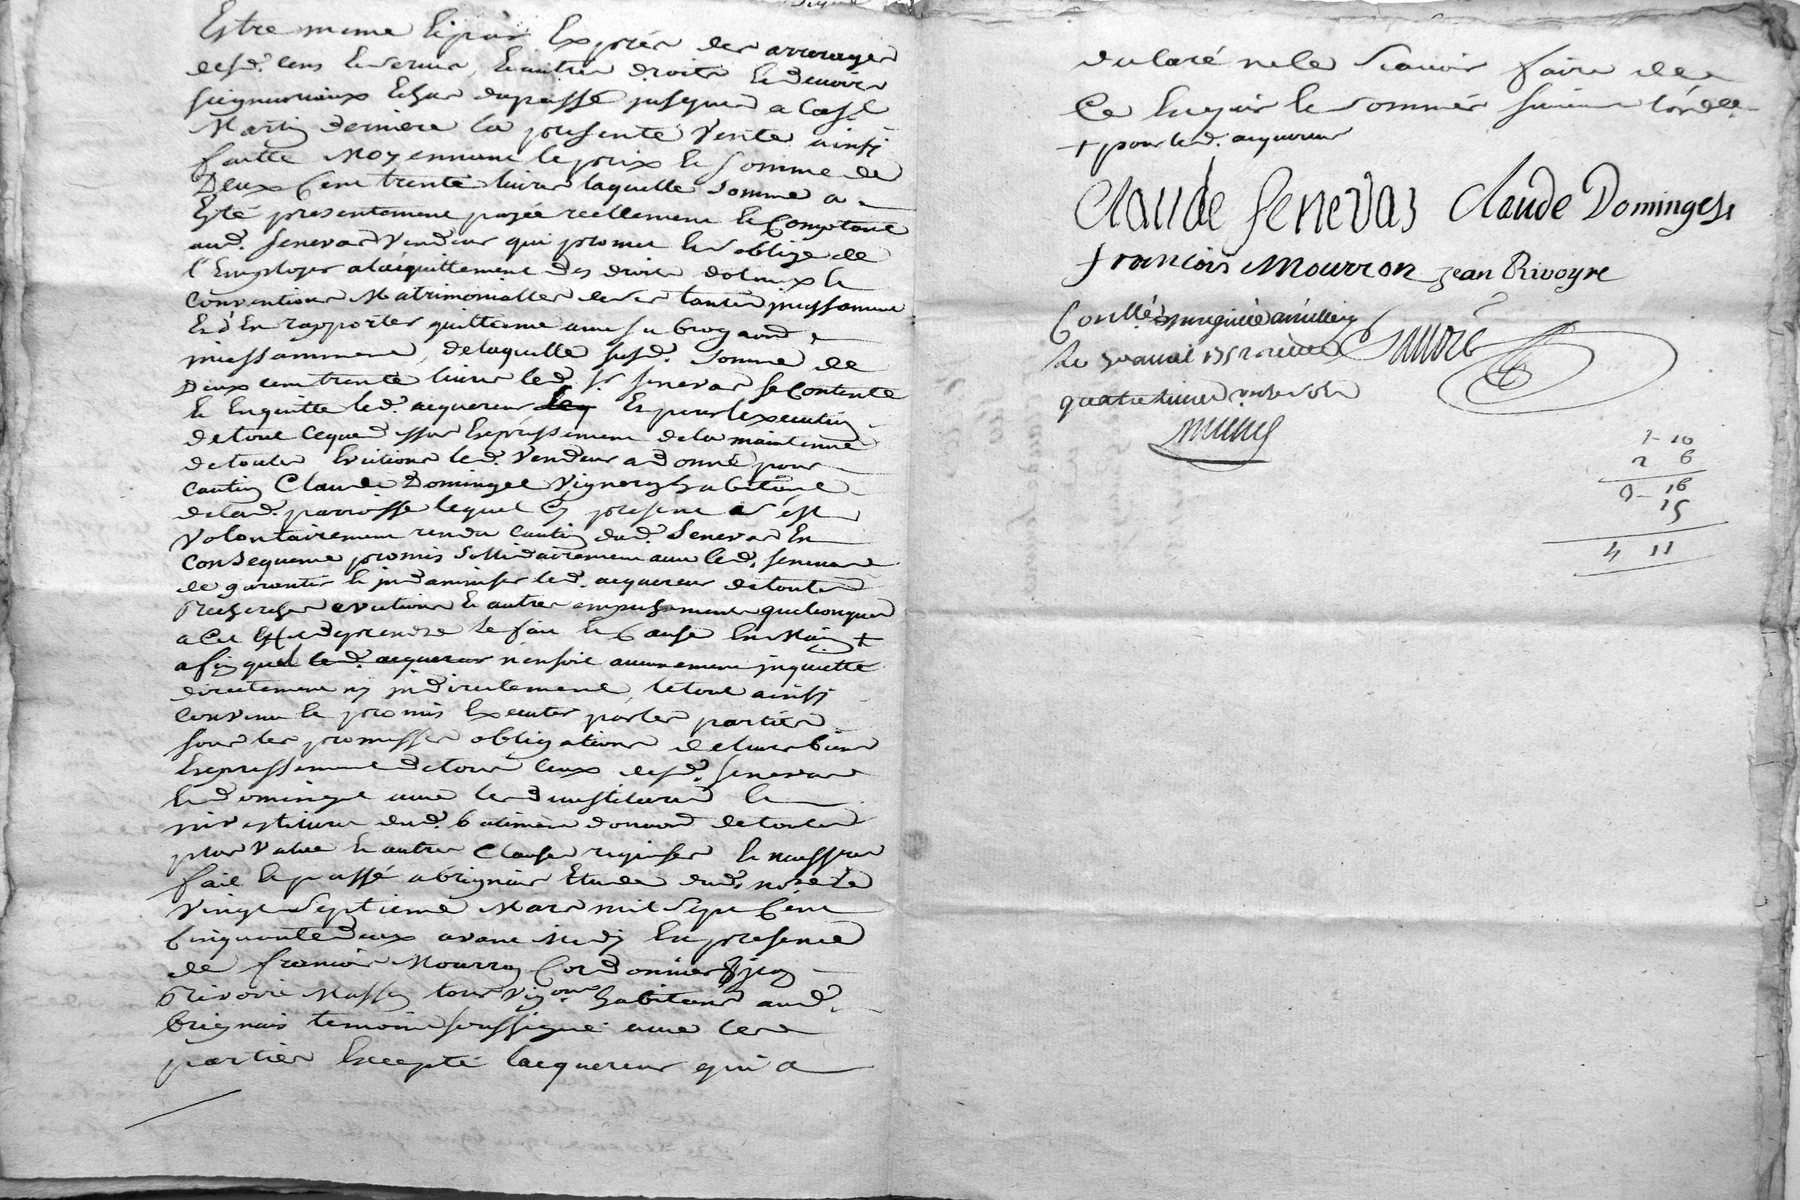 Estre meme Expres des arrerages
desd. cens & servis, & autres droits & devoirs
seigneuriaux Echus du passé jusques a la st
Martin derniere la presente Vente ainsi
faitte Moyennant le prix & somme de
Deux Cent trente livres laquelle somme a
Esté presentement payée reellement & Comptant
aud. Senevas Vendeur qui promet & s'oblige de
l'Employer a l'acquittement des droits dotaux &
Conventions Matrimonialles de sa tante incessament
Et d'En rapporter quittance avec subrogaon
incessamment, de laquelle susd. somme de
Deux cent trente livres led. sr Senevas se Contente
& En quitte led. acquereur Et pour l'execution
de tout ce que dessus Expressement de la maintenue
de toutes Evictions led. Vendeur a donné pour
caution Claude Domingee Vigneron habitant
de lad. parroisse lequel Cy present s'est
Volontairement rendu caution dud. Senevas En
Consequence promis Sollidairement avec led. Senevas
de garantir & indamniser led. acquereur de toutes
Recherches evictions & autres empechements quelconques
a Cet Effet de prendre le fait & Cause En Main +
afin que led. acquereur n'en soit aucunement inquietté
directement ny indirectement, le tout ainsi
Convenu & promis Executer par les parties
sous les promesses obligations de leurs biens
Expressement de tous Ceux desd. Senevas
& Domingee avec les devestitures &
investiture dud. batiment donaon de toutes
plus Value & autres Clauses requises & necessres
fait & passé a brignais Etude dud. nore le
Vingt Septieme Mars mil Sept Cent
Cinquante deux avant Midy En presence
de francois Mourron Cordonnier & jean
Rivoire Masson tous habitans aud.
brignais temoins soussignés avec les
parties Excepté lacquereur qui a
declaré ne le Scavoir faire de
Ce Enquis & sommé suivant l'ord.ce
+ pour led. acquereur
Claude Senevas Claude Domingest
francois Mourron jean Rivoyre
Conllé &
le avril 1752 receu
quatre livres onze sols
1-10
2 6
3-16
15
4 11